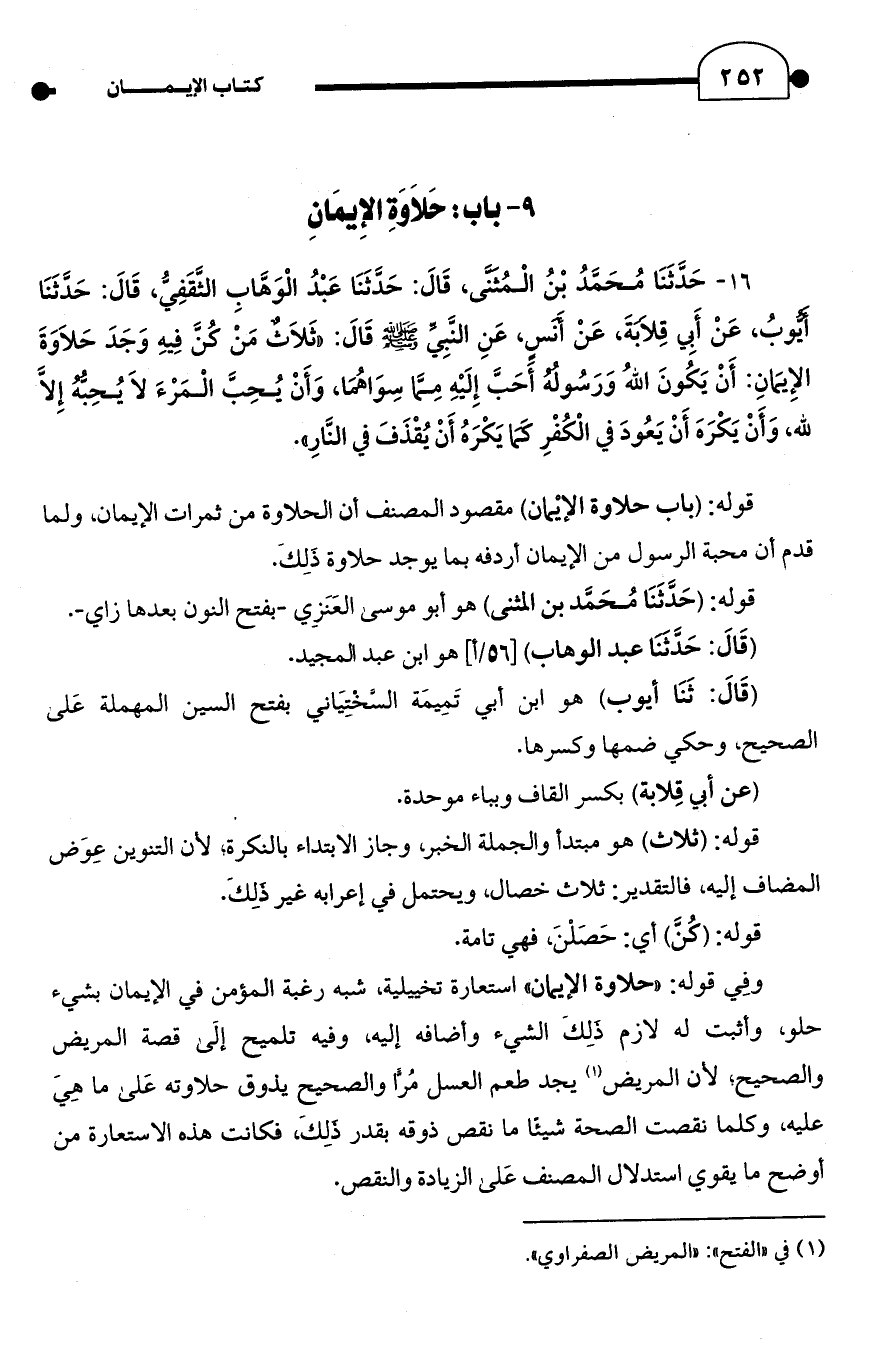 ٢٥٢
كتاب الإيـمـــــان
٩- باب: حَلاَوَةِ الإِيمَانِ
١٦- حَدَّثَنَا مُـحَمَّدُ بْنُ الْـمُثَنَّى، قَالَ: حَدَّثَنَا عَبْدُ الْوَهَّابِ الثَّقَفِيُّ، قَالَ: حَدَّثَنَا
أَيُّوبُ، عَنْ أَبِي قِلاَبَةَ، عَنْ أَنَسٍ، عَنِ النَّبِيِّ ﷺ قَالَ: «ثَلاَثٌ مَنْ كُنَّ فِيهِ وَجَدَ حَلاَوَةَ
الإِيمَانِ: أَنْ يَكُونَ اللهُ وَرَسُولُهُ أَحَبَّ إِلَيْهِ مِـمَّا سِوَاهُمَا، وَأَنْ يُـحِبَّ الْـمَرْءَ لاَ يُـحِبُّهُ إِلاَّ
لله، وَأَنْ يَكْرَهَ أَنْ يَعُودَ فِي الْكُفْرِ كَمَا يَكْرَهُ أَنْ يُقْذَفَ فِي النَّارِ».
قوله: (باب حلاوة الإيْمان) مقصود المصنف أن الحلاوة من ثمرات الإيمان، ولما
قدم أن محبة الرسول من الإيمان أردفه بما يوجد حلاوة ذَلِكَ.
قوله: (حَدَّثَنَا مُـحَمَّد بن المثنى) هو أبو موسىٰ العَنَزِي -بفتح النون بعدها زاي-.
(قَالَ: حَدَّثَنَا عبد الوهاب) [٥٦/أ] هو ابن عبد المجيد.
(قَالَ: ثَنَا أيوب) هو ابن أبي تَمِيمَة السَّخْتِيَاني بفتح السين المهملة عَلىٰ
الصحيح، وحكي ضمها وكسرها.
(عن أبي قِلابة) بكسر القاف وبباء موحدة.
قوله: (ثلاث) هو مبتدأ والجملة الخبر، وجاز الابتداء بالنكرة؛ لأن التنوين عِوَض
المضاف إليه، فالتقدير: ثلاث خصال، ويحتمل في إعرابه غير ذَلِكَ.
قوله: (كُنَّ) أي: حَصَلْنَ، فهي تامة.
وفِي قوله: «حلاوة الإيمان» استعارة تخييلية، شبه رغبة المؤمن في الإيمان بشيء
حلو، وأثبت له لازم ذَلِكَ الشيء وأضافه إليه، وفيه تلميح إلَىٰ قصة المريض
والصحيح؛ لأن المريض(١) يجد طعم العسل مُرًّا والصحيح يذوق حلاوته عَلىٰ ما هِيَ
عليه، وكلما نقصت الصحة شيئًا ما نقص ذوقه بقدر ذَلِكَ، فكانت هذه الاستعارة من
أوضح ما يقوي استدلال المصنف عَلىٰ الزيادة والنقص.
(١) في «الفتح»: «المريض الصفراوي».